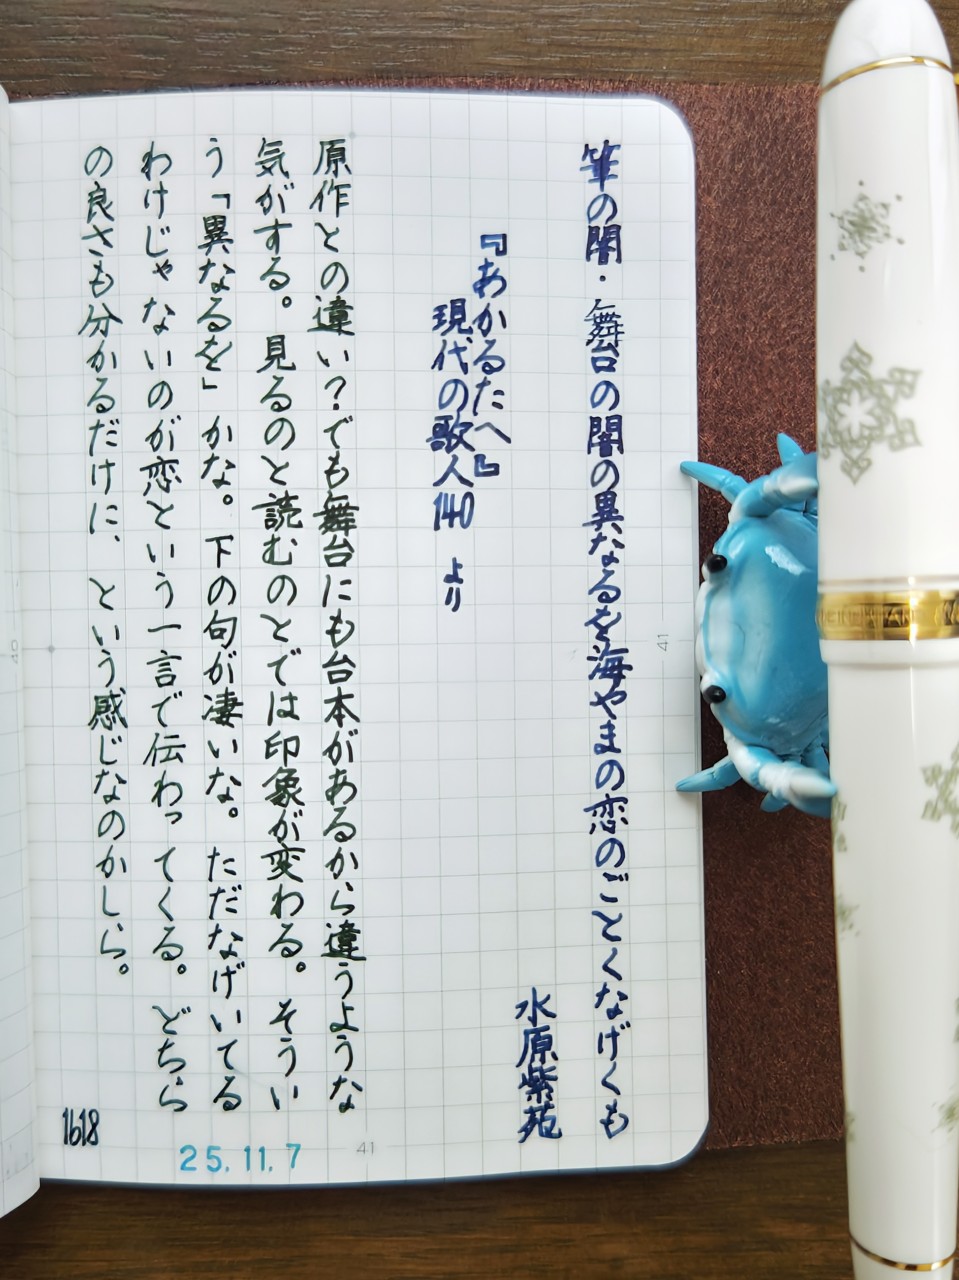 筆の闇・舞台の闇の異なるを海やまの恋のごとくなげくも
水原紫苑
『あかるたへ』
現代の歌人140 より
原作との違い？でも舞台にも台本があるから違うような
気がする。見るのと読むのとでは印象が変わる。そうい
う「異なるを」かな。下の句が凄いな。ただなげいてる
わけじゃないのが恋という一言で伝わってくる。どちら
の良さも分かるだけに、という感じなのかしら。
1618
25.11.7
41
41
40